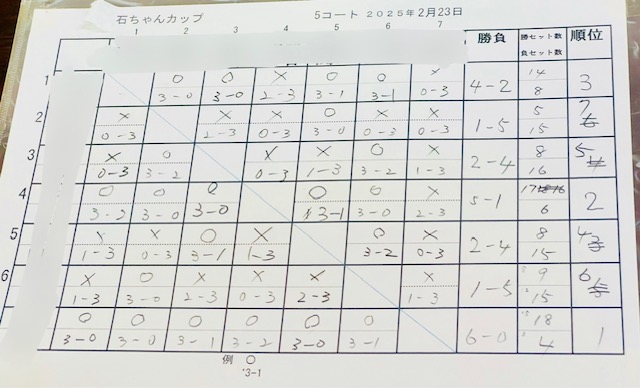 石ちゃんカップ 5コート 2025年2月23日
1 2 3 4 5 6 7 勝負 勝セット数 負セット数 順位
1 ○ ○ × ○ ○ ×
3-0 3-0 2-3 3-1 3-1 0-3 4-2 14 8 3
2 × × × ○ × ×
0-3 2-3 0-3 3-0 0-3 0-3 1-5 5 15 7
3 × ○ × × ○ ×
0-3 3-2 0-3 1-3 3-2 1-3 2-4 8 16 5
4 ○ ○ ○ ○ ○ ×
3-2 3-0 3-0 3-1 3-0 2-3 5-1 17 6 2
5 × × ○ × ○ ×
1-3 0-3 3-1 1-3 3-2 0-3 2-4 8 15 4
6 × ○ × × × ×
1-3 3-0 2-3 0-3 2-3 1-3 1-5 9 15 6
○ ○ ○ ○ ○ ○
3-0 3-0 3-1 3-2 3-0 3-1 6-0 18 4 1
例 ○
3-1